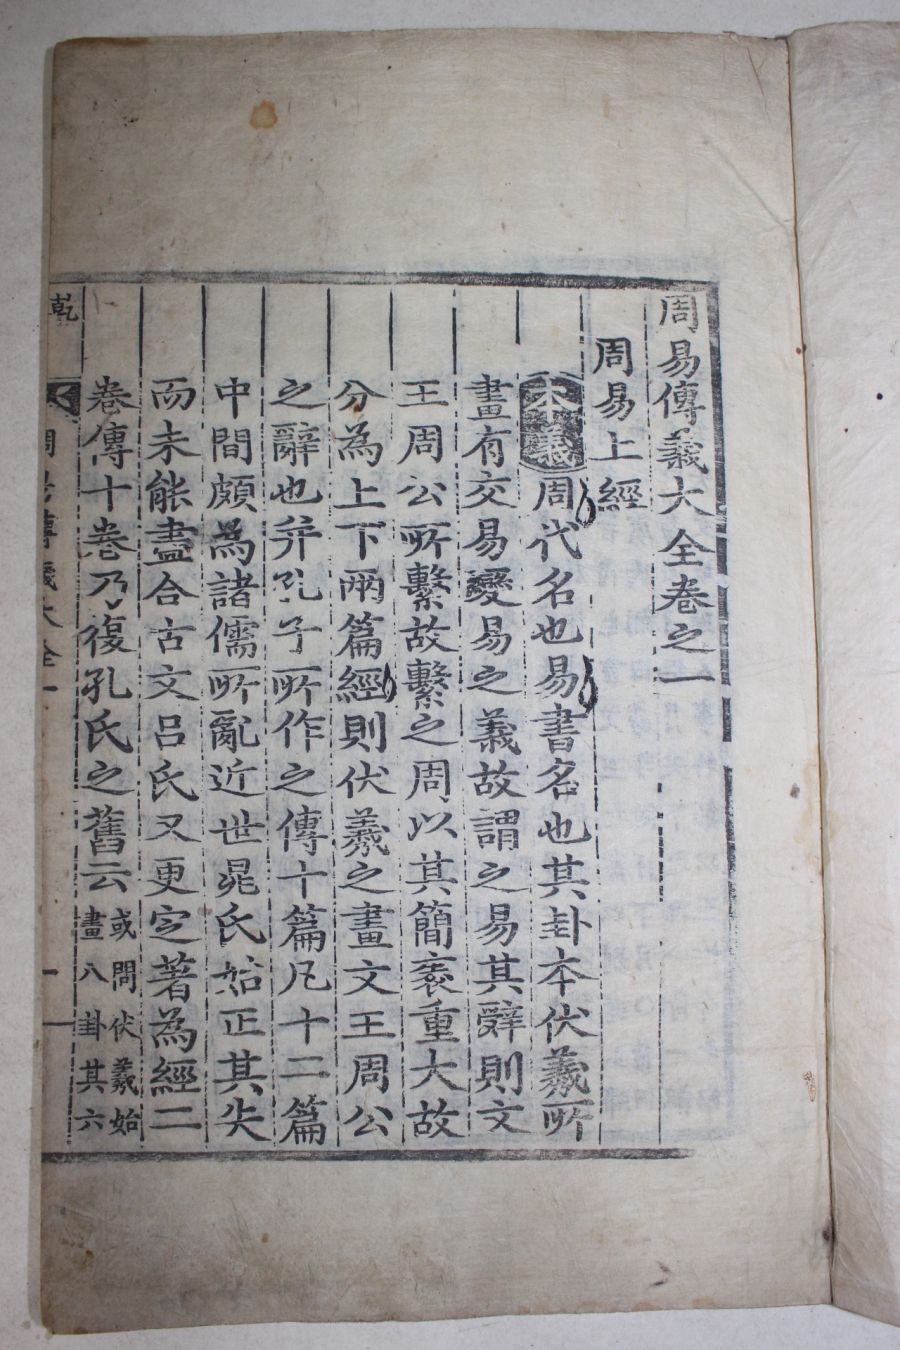 周易傳義大全卷之一
周易上經
本義周代名也易書名也其卦本伏羲所
畫有交易變易之義故謂之易其辭則文
王周公所繫故繫之周以其簡袠重大故
分為上下兩篇經則伏羲之畫文王周公
之辭也并孔子所作之傳十篇凡十二篇
中間頗為諸儒所亂近世晁氏始正其失
而未能盡合古文呂氏又更定著為經二
卷傳十卷乃復孔氏之舊云
或問伏羲始
畫八卦其六
乾
周易傳義大全一
一